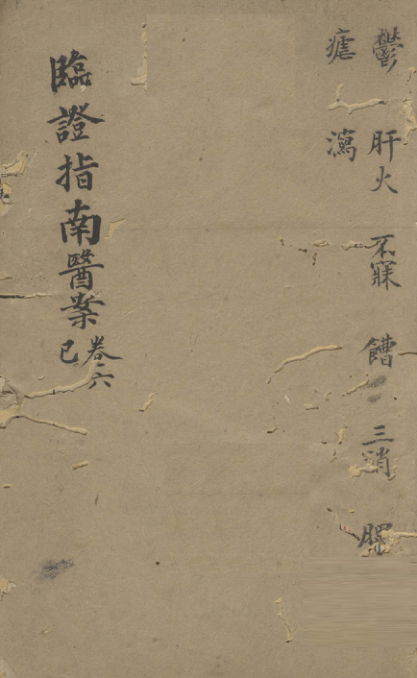 鬱 肝火 不寐 三消
瘧 瀉
臨證指南醫案
卷六
己